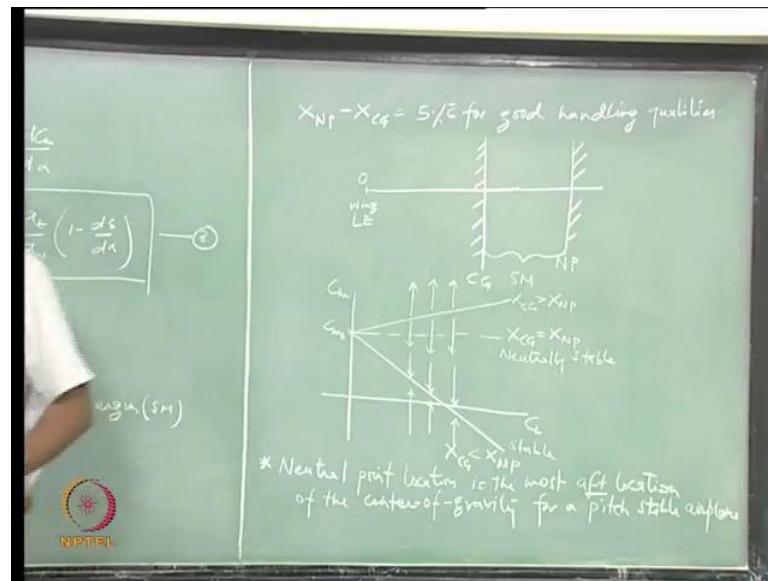 dα
(1 - dε/dα) — ②
argin (SM)
X_NP - X_CG = 5% c̄ for good handling qualities
O
wing
LE
CG SM NP
C_m
C_m0
X_CG > X_NP
X_CG = X_NP
Neutrally stable
C_L
Stable
X_CG < X_NP
* Neutral point location is the most aft location
of the center-of-gravity for a pitch stable airplane
NPTEL